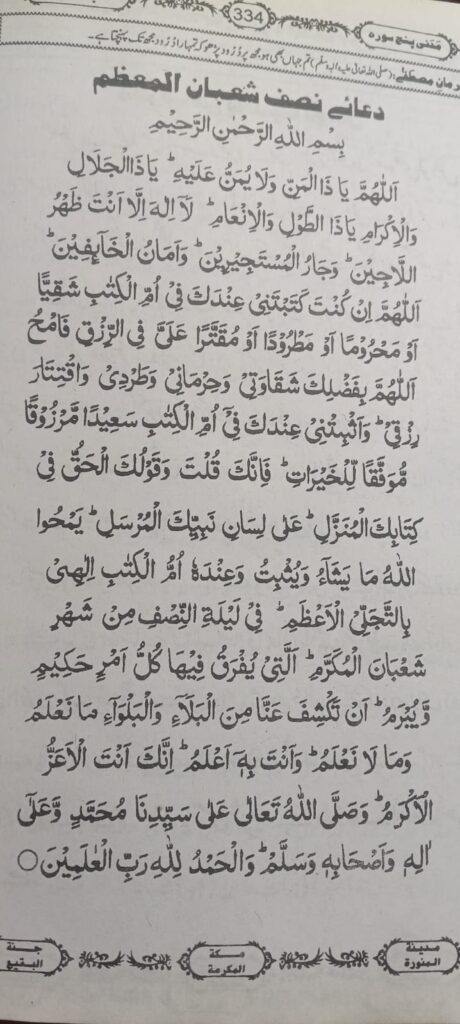 مَدَنی پنج سورہ
334
فرمانِ مصطفٰے (صلی اللہ تعالیٰ علیہ والہ وسلم) تم جہاں بھی ہو مجھ پر دُرُود پڑھو کہ تمہارا دُرُود مجھ تک پہنچتا ہے۔
دعائے نصف شعبان المعظم
بِسْمِ اللهِ الرَّحْمٰنِ الرَّحِيْمِ
اَللّٰهُمَّ يَا ذَا الْمَنِّ وَلَا يُمَنُّ عَلَيْهِ ؕ يَا ذَا الْجَلَالِ
وَالْاِكْرَامِ يَا ذَا الطَّوْلِ وَالْاِنْعَامِ ؕ لَآ اِلٰهَ اِلَّا اَنْتَ ظَهْرُ
اللَّاجِيْنَ ؕ وَجَارُ الْمُسْتَجِيْرِيْنَ ؕ وَاَمَانُ الْخَآئِفِيْنَ ؕ
اَللّٰهُمَّ اِنْ كُنْتَ كَتَبْتَنِيْ عِنْدَكَ فِيْٓ اُمِّ الْكِتٰبِ شَقِيًّا
اَوْ مَحْرُوْمًا اَوْ مَطْرُوْدًا اَوْ مُقَتَّرًا عَلَيَّ فِي الرِّزْقِ فَامْحُ
اَللّٰهُمَّ بِفَضْلِكَ شَقَاوَتِيْ وَحِرْمَانِيْ وَطَرْدِيْ وَاقْتِتَارَ
رِزْقِيْ ؕ وَاَثْبِتْنِيْ عِنْدَكَ فِيْٓ اُمِّ الْكِتٰبِ سَعِيْدًا مَّرْزُوْقًا
مُّوَفَّقًا لِّلْخَيْرَاتِ ؕ فَاِنَّكَ قُلْتَ وَقَوْلُكَ الْحَقُّ فِيْ
كِتَابِكَ الْمُنَزَّلِ ؕ عَلٰى لِسَانِ نَبِيِّكَ الْمُرْسَلِ ؕ يَمْحُوا
اللهُ مَا يَشَآءُ وَيُثْبِتُ وَعِنْدَهٗٓ اُمُّ الْكِتٰبِ اِلٰهِيْ
بِالتَّجَلِّيِّ الْاَعْظَمِ ؕ فِيْ لَيْلَةِ النِّصْفِ مِنْ شَهْرِ
شَعْبَانَ الْمُكَرَّمِ ؕ اَلَّتِيْ يُفْرَقُ فِيْهَا كُلُّ اَمْرٍ حَكِيْمٍ
وَّيُبْرَمُ ؕ اَنْ تَكْشِفَ عَنَّا مِنَ الْبَلَآءِ وَالْبَلْوَآءِ مَا نَعْلَمُ
وَمَا لَا نَعْلَمُ ؕ وَاَنْتَ بِهٖٓ اَعْلَمُ ؕ اِنَّكَ اَنْتَ الْاَعَزُّ
الْاَكْرَمُ ؕ وَصَلَّى اللهُ تَعَالٰى عَلٰى سَيِّدِنَا مُحَمَّدٍ وَّعَلٰٓى
اٰلِهٖ وَاَصْحَابِهٖ وَسَلَّمَ ؕ وَالْحَمْدُ لِلّٰهِ رَبِّ الْعٰلَمِيْنَ ○
مدينة المنورة
مكة المكرمة
جنة البقيع